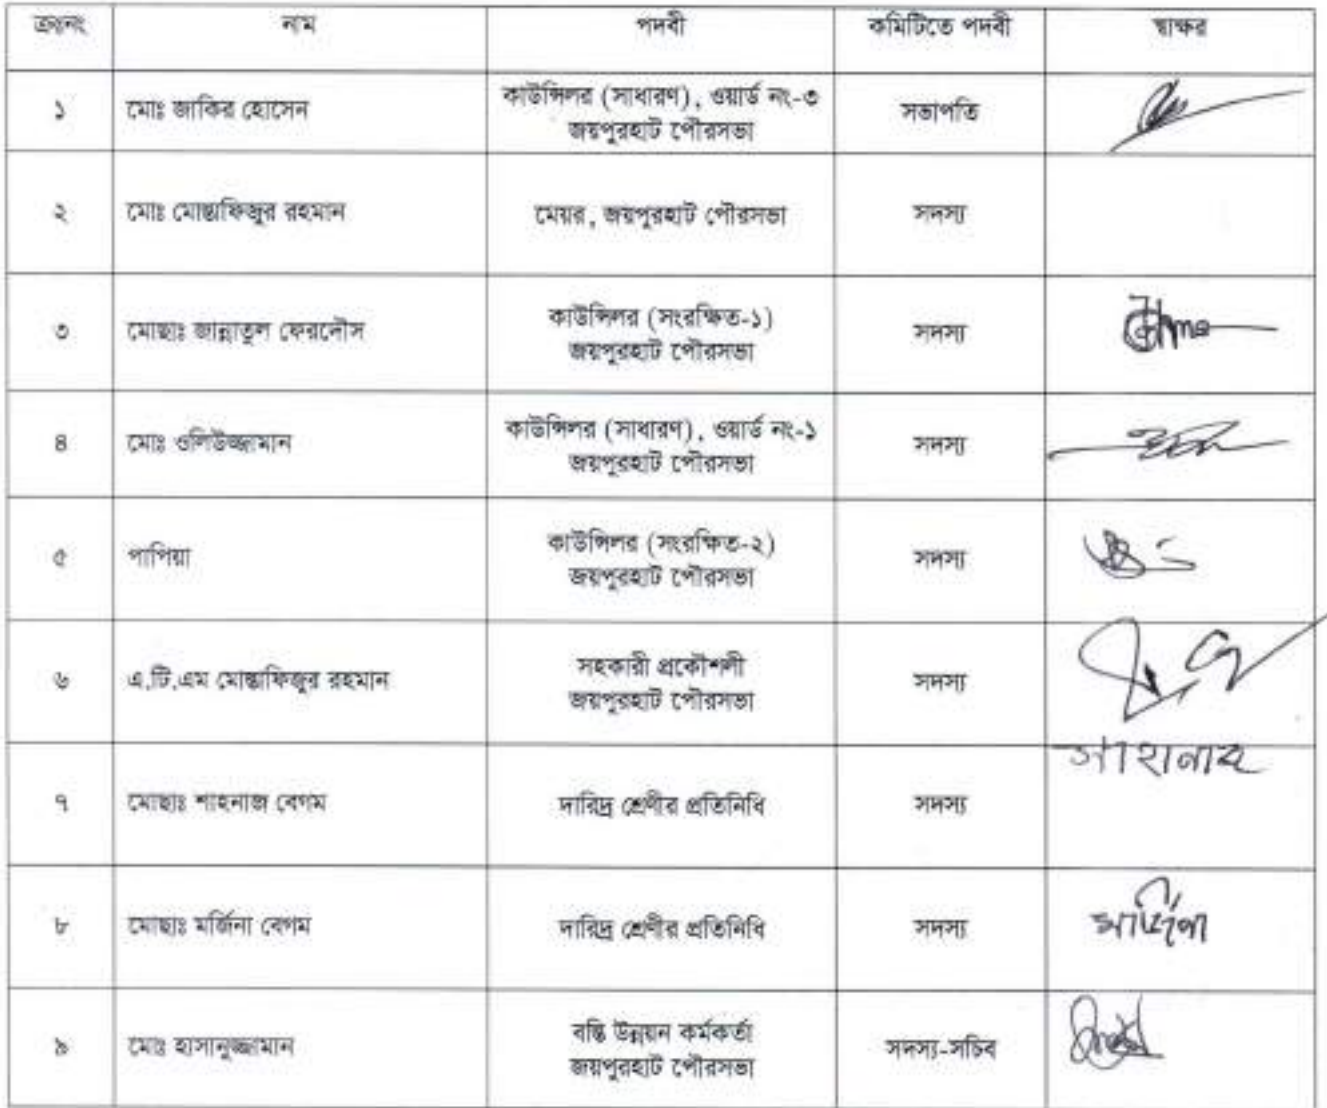 ক্রঃনং নাম পদবী কমিটিতে পদবী স্বাক্ষর
১ মোঃ জাকির হোসেন কাউন্সিলর (সাধারণ), ওয়ার্ড নং-৩ সভাপতি
জয়পুরহাট পৌরসভা
২ মোঃ মোস্তাফিজুর রহমান মেয়র, জয়পুরহাট পৌরসভা সদস্য
৩ মোছাঃ জান্নাতুল ফেরদৌস কাউন্সিলর (সংরক্ষিত-১) সদস্য
জয়পুরহাট পৌরসভা
৪ মোঃ ওলিউজ্জামান কাউন্সিলর (সাধারণ), ওয়ার্ড নং-১ সদস্য
জয়পুরহাট পৌরসভা
৫ পাপিয়া কাউন্সিলর (সংরক্ষিত-২) সদস্য
জয়পুরহাট পৌরসভা
৬ এ.টি.এম মোস্তাফিজুর রহমান সহকারী প্রকৌশলী সদস্য
জয়পুরহাট পৌরসভা
৭ মোছাঃ শাহনাজ বেগম দারিদ্র শ্রেণীর প্রতিনিধি সদস্য
৮ মোছাঃ মর্জিনা বেগম দারিদ্র শ্রেণীর প্রতিনিধি সদস্য মর্জিনা
৯ মোঃ হাসানুজ্জামান বস্তি উন্নয়ন কর্মকর্তা সদস্য-সচিব
জয়পুরহাট পৌরসভা